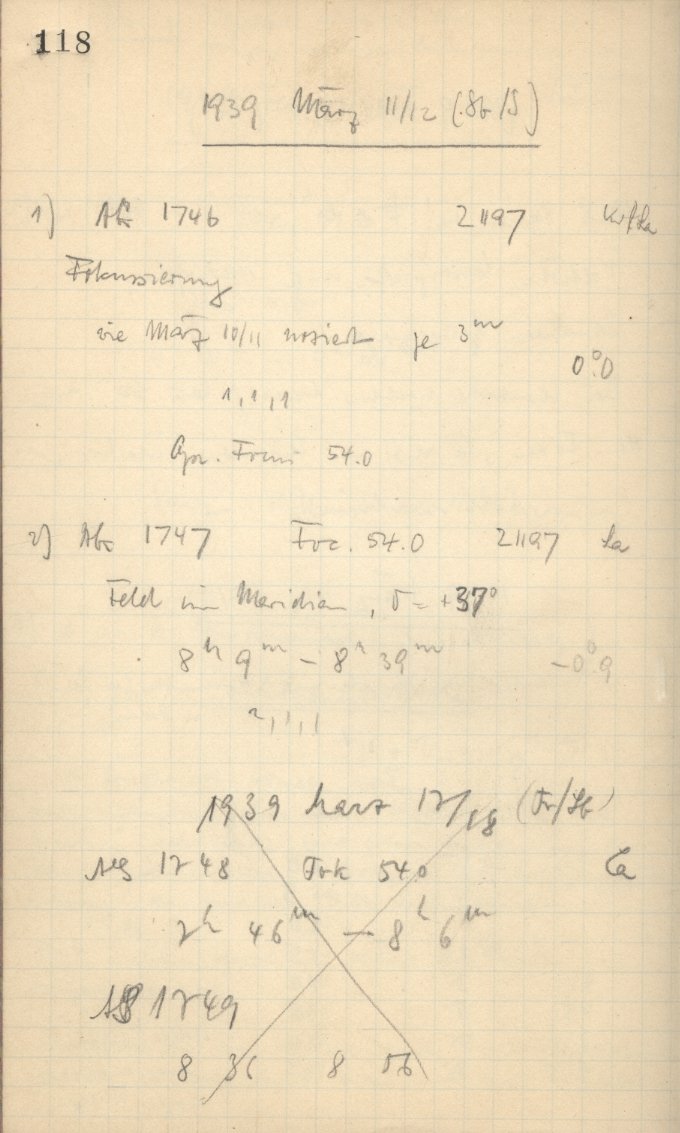 118
1939 März 11/12 (Sb/S)
1) 1746 21197
Fokussierung
wie März 10/11 notiert je 3m
0°.0
1,1,1,1
54.0
2) 1747 Foc. 54.0 21197 La
Feld im Meridian, δ = +37°
8h 9m – 8h 39m –0°.9
2,1,1,1
1939 März 17/18 (Fr/Sb)
1748 Fok 54.0 La
7h 46m – 8h 6m
1749
8 36 8 56